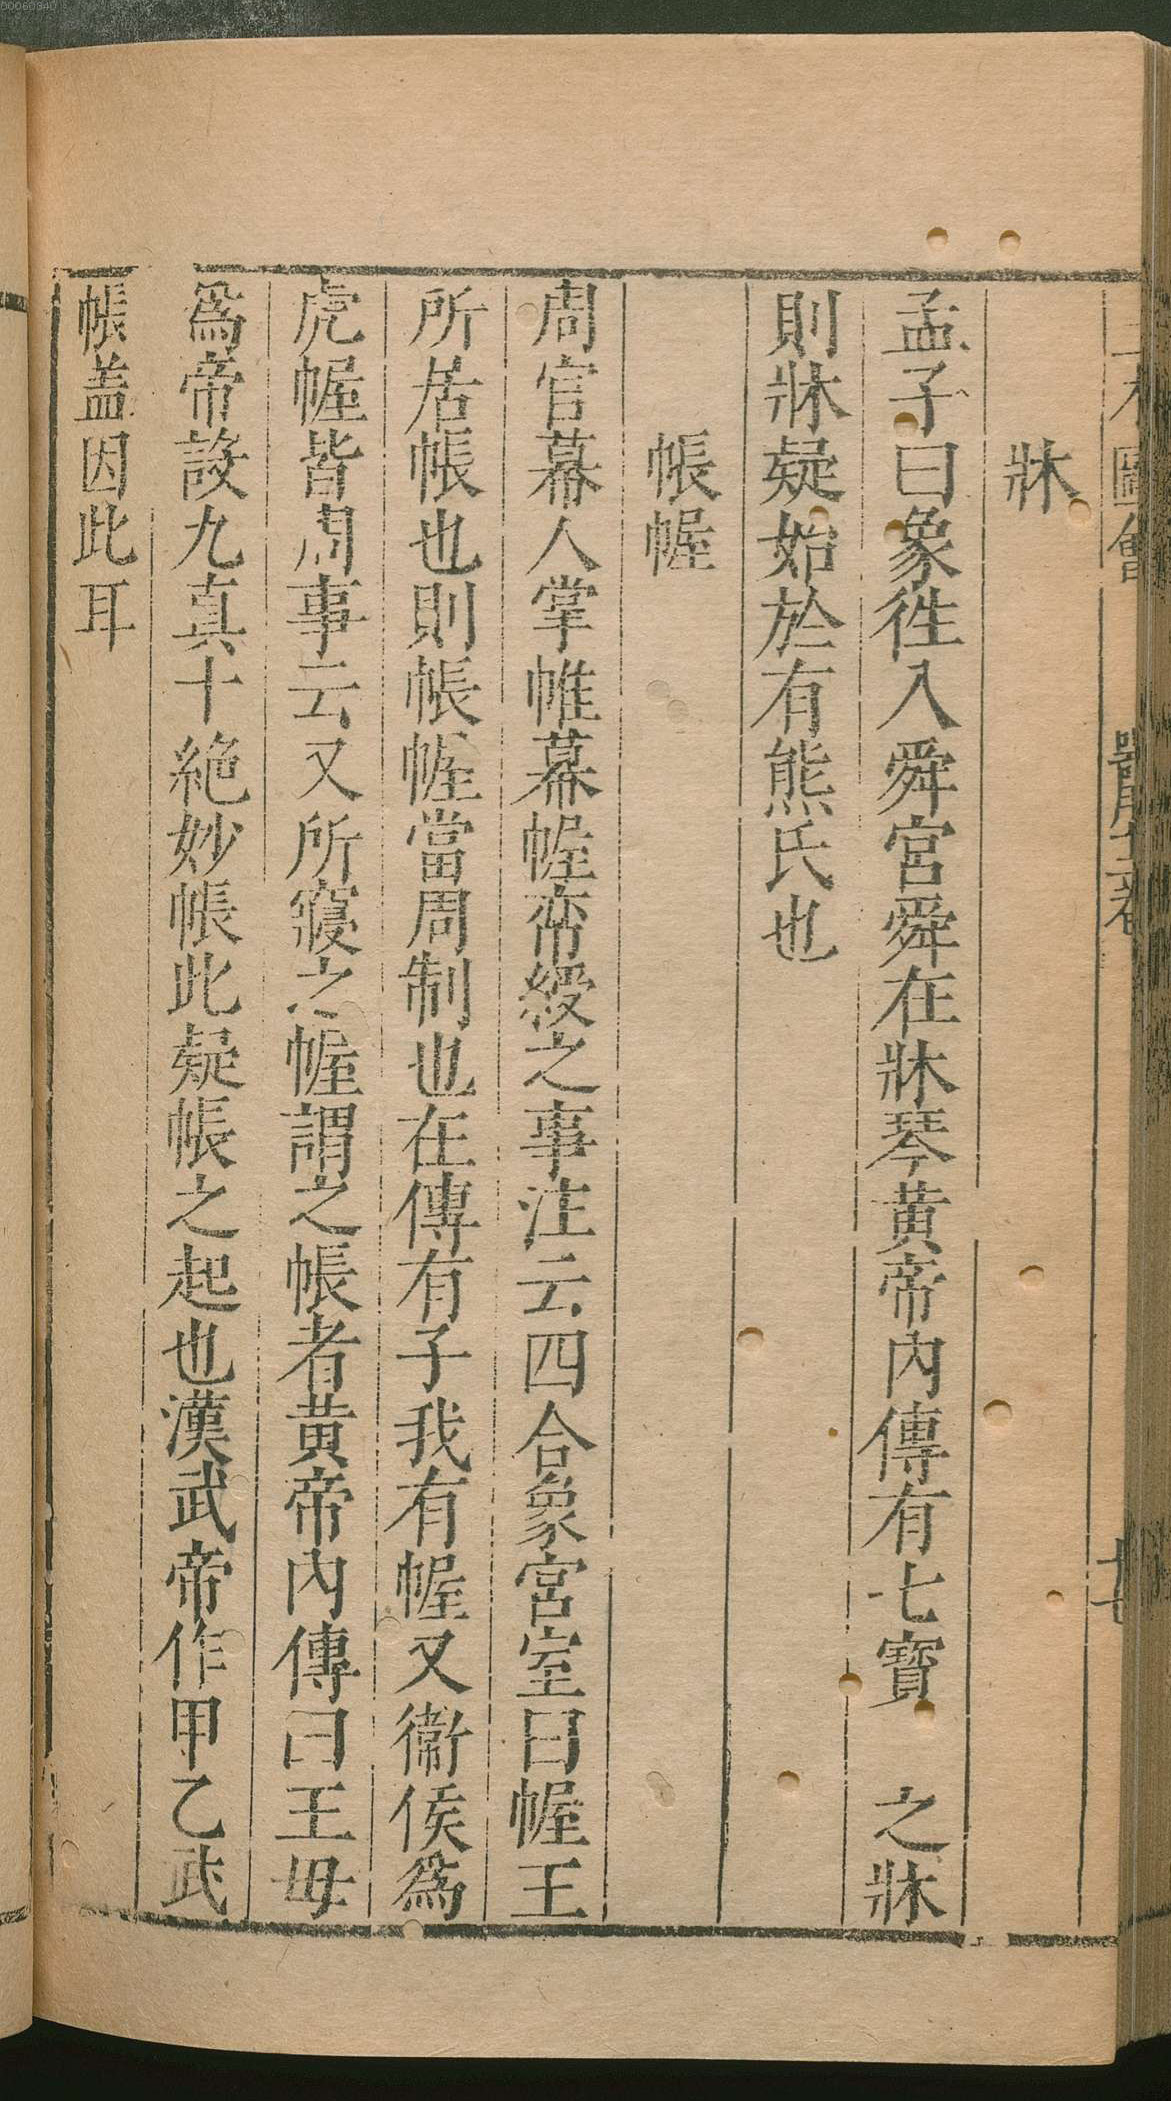 牀
孟子曰象徃入舜宮舜在牀琴黄帝內傳有七寶 之牀
則牀疑始於有熊氏也
帳幄
周官幕人掌帷幕幄帟綬之事注云四合象宮室曰幄王
所居帳也則帳幄當周制也在傳有子我有幄又衞侯爲
虎幄皆周事云又所寢之幄謂之帳者黄帝內傳曰王母
爲帝設九真十絶妙帳此疑帳之起也漢武帝作甲乙武
帳盖因此耳
00060340